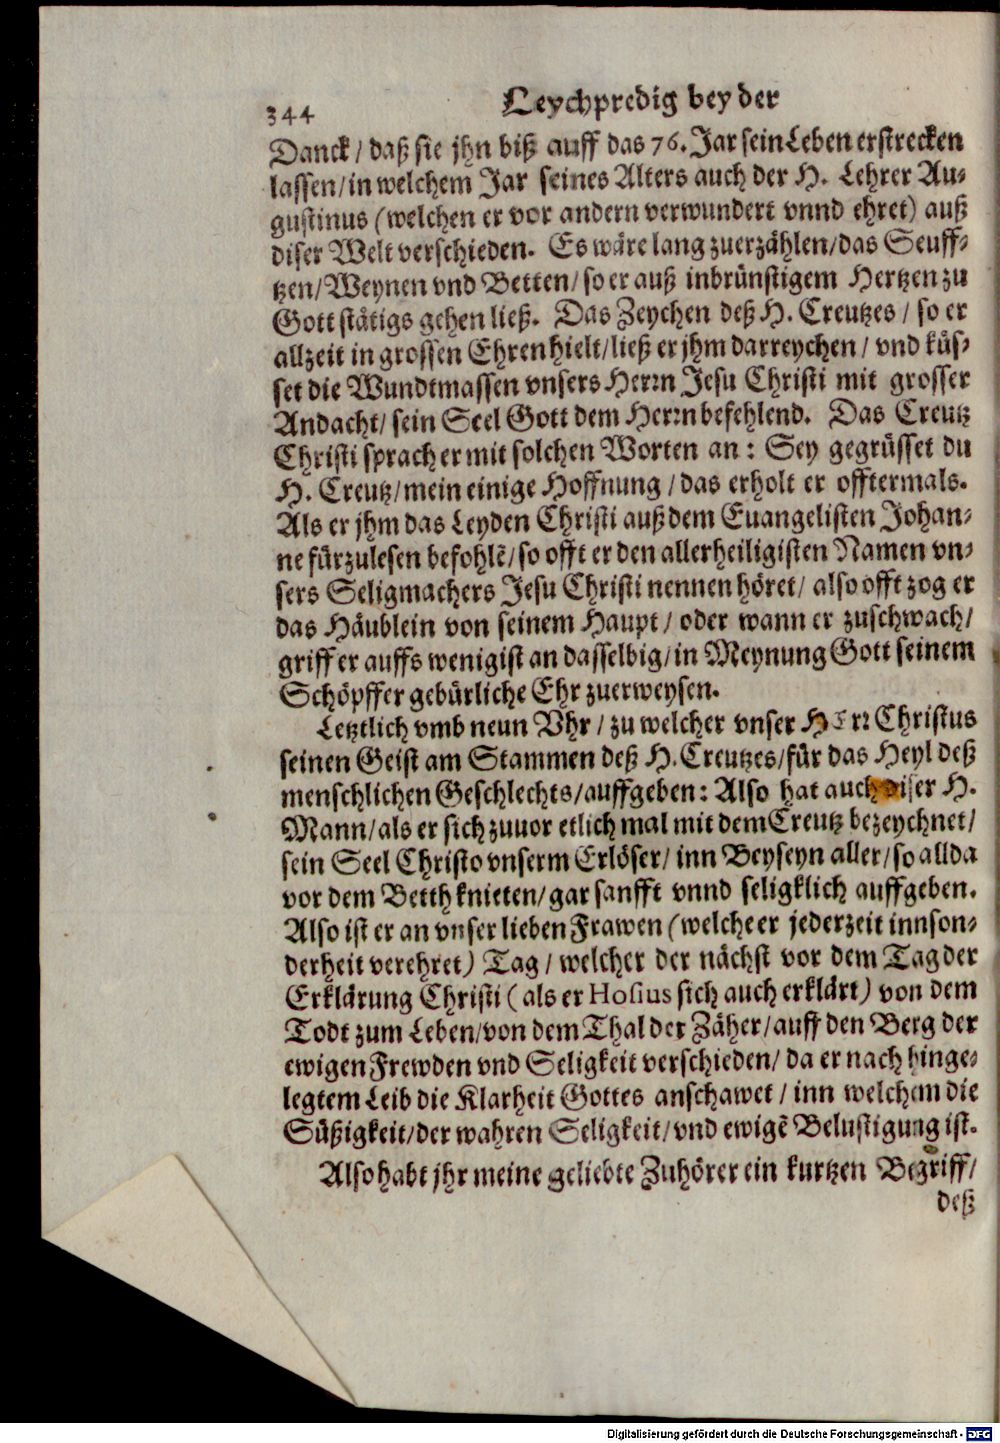 344 Leychpredig bey der
Danck / daß sie jhn biß auff das 76. Jar sein Leben erstrecken
lassen / in welchem Jar seines Alters auch der H. Lehrer Au-
gustinus (welchen er vor andern verwundert vnnd ehret) auß
diser Welt verschieden. Es wäre lang zuerzählen / das Seuff-
tzen / Weynen vnd Betten / so er auß inbrünstigem Hertzen zu
Gott stätigs gehen ließ. Das Zeychen deß H. Creutzes / so er
allzeit in grossen Ehren hielt / ließ er jhm darreychen / vnd küs-
set die Wundtmassen vnsers Herrn Jesu Christi mit grosser
Andacht / sein Seel Gott dem Herrn befehlend. Das Creutz
Christi sprach er mit solchen Worten an : Sey gegrüsset du
H. Creutz / mein einige Hoffnung / das erholt er offtermals.
Als er jhm das Leyden Christi auß dem Euangelisten Johan-
ne fürzulesen befohlē / so offt er den allerheiligisten Namen vn-
sers Seligmachers Jesu Christi nennen höret / also offt zog er
das Häublein von seinem Haupt / oder wann er zuschwach /
griff er auffs wenigist an dasselbig / in Meynung Gott seinem
Schöpffer gebürliche Ehr zuerweysen.
Letztlich vmb neun Vhr / zu welcher vnser HErr Christus
seinen Geist am Stammen deß H. Creutzes / für das Heyl deß
menschlichen Geschlechts / auffgeben : Also hat auch diser H.
Mann / als er sich zuuor etlich mal mit dem Creutz bezeychnet /
sein Seel Christo vnserm Erlöser / inn Beyseyn aller / so allda
vor dem Betth knieten / gar sanfft vnnd seligklich auffgeben.
Also ist er an vnser lieben Frawen (welche er jederzeit innson-
derheit verehret) Tag / welcher der nächst vor dem Tag der
Erklärung Christi (als er Hosius sich auch erklärt) von dem
Todt zum Leben / von dem Thal der Zäher / auff den Berg der
ewigen Frewden vnd Seligkeit verschieden / da er nach hinge-
legtem Leib die Klarheit Gottes anschawet / inn welchem die
Süßigkeit / der wahren Seligkeit / vnd ewigē Belustigung ist.
Also habt jhr meine geliebte Zuhörer ein kurtzen Begriff /
deß
Digitalisierung gefördert durch die Deutsche Forschungsgemeinschaft - DFG